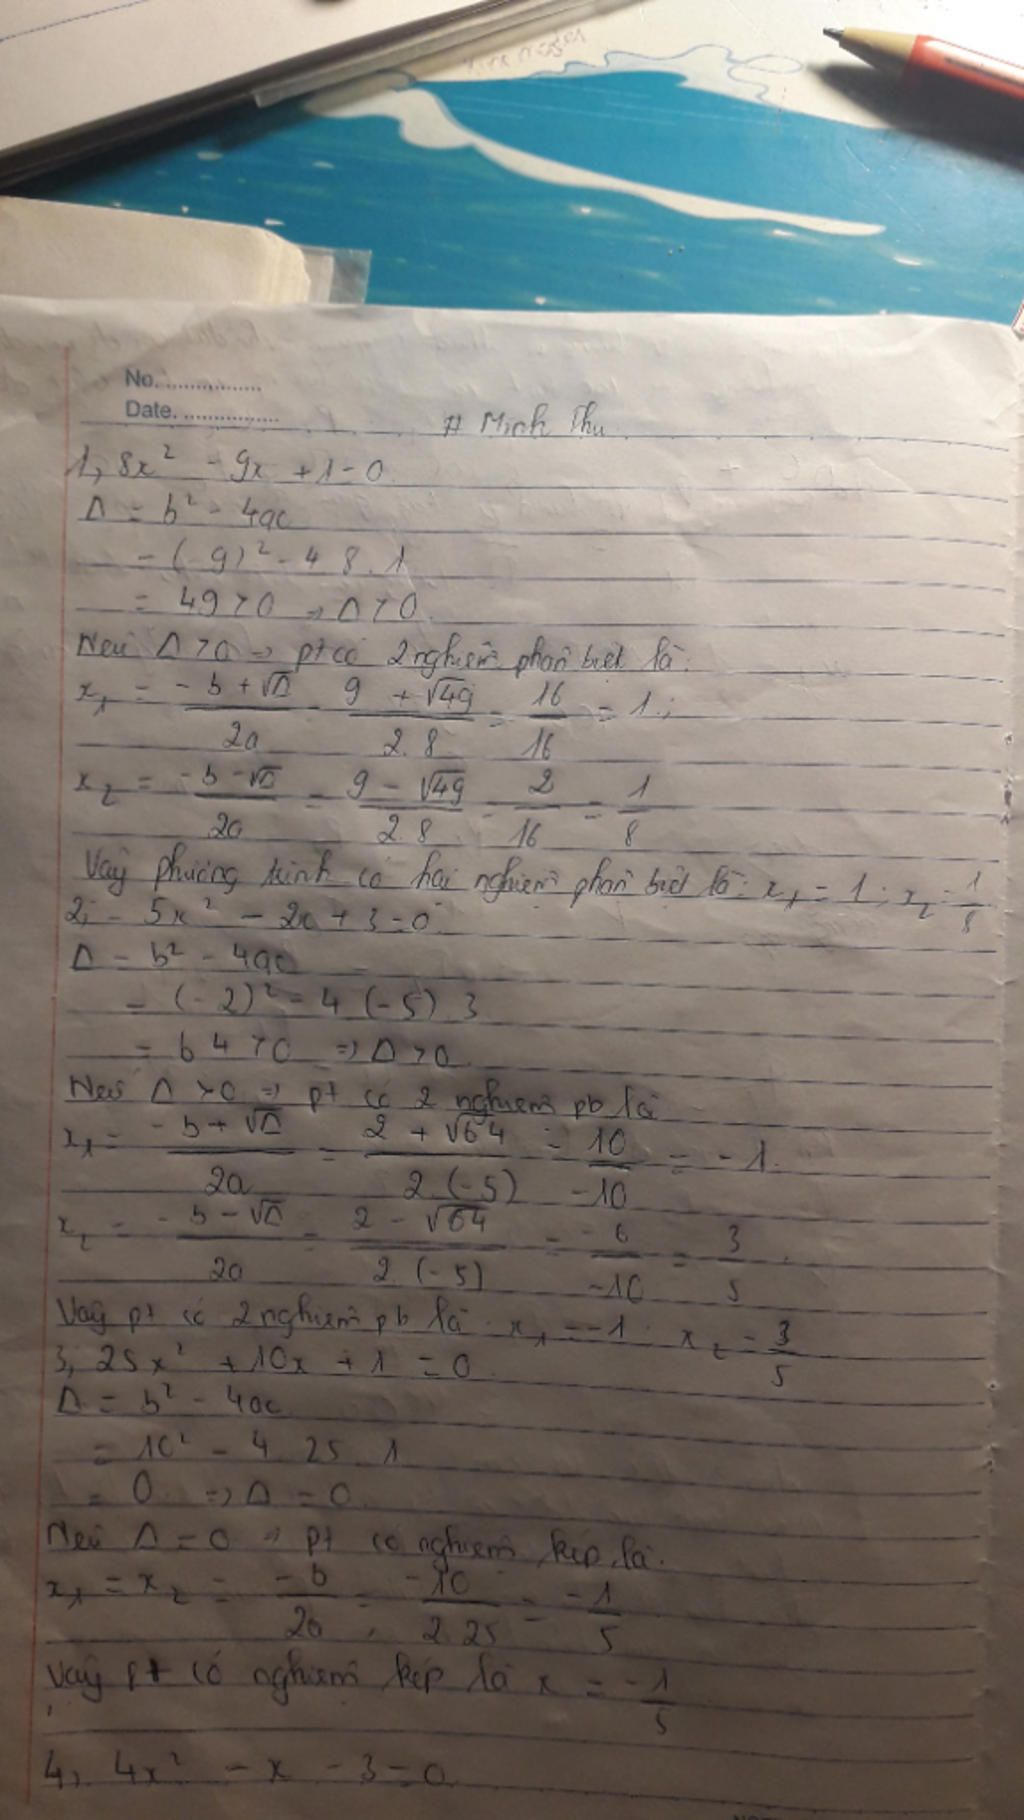 No. ................
Date. ................
# Minh Thu
1, 8x² - 9x + 1 = 0
Δ = b² - 4ac
= (-9)² - 4.8.1
= 49 > 0 => Δ > 0
Nếu Δ > 0 => pt có 2 nghiệm phân biệt là:
x₁ = (-b + √Δ)/2a = (9 + √49)/2.8 = 16/16 = 1;
x₂ = (-b - √Δ)/2a = (9 - √49)/2.8 = 2/16 = 1/8
Vậy phương trình có hai nghiệm phân biệt là: x₁ = 1; x₂ = 1/8
2, - 5x² - 2x + 3 = 0
Δ = b² - 4ac
= (-2)² - 4 (-5) 3
= 64 > 0 => Δ > 0
Nếu Δ > 0 => pt có 2 nghiệm pb là
x₁ = (-b + √Δ)/2a = (2 + √64)/2.(-5) = 10/-10 = -1.
x₂ = (-b - √Δ)/2a = (2 - √64)/2.(-5) = -6/-10 = 3/5
Vậy pt có 2 nghiệm pb là: x₁ = -1; x₂ = 3/5
3, 25x² + 10x + 1 = 0
Δ = b² - 4ac
= 10² - 4 25 1
= 0 => Δ = 0
Nếu Δ = 0 => pt có nghiệm kép là:
x₁ = x₂ = -b/2a = -10/2.25 = -1/5
Vậy pt có nghiệm kép là x = -1/5
4, 4x² - x - 3 = 0